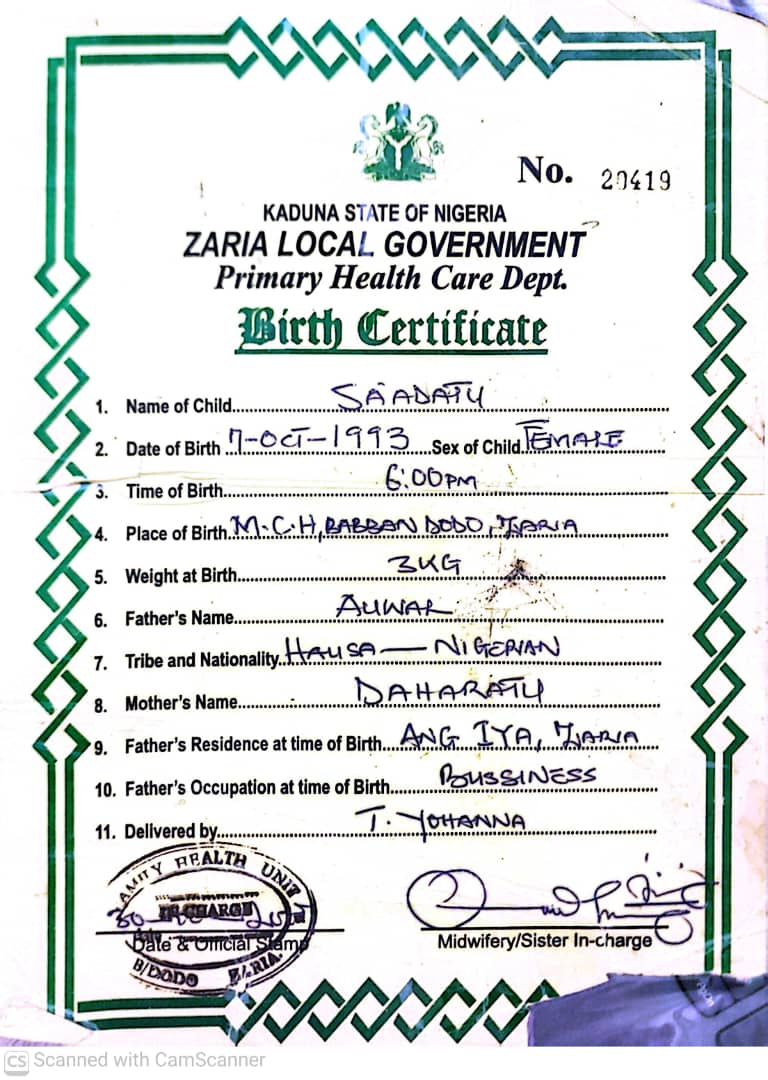 No. 20419
KADUNA STATE OF NIGERIA
ZARIA LOCAL GOVERNMENT
Primary Health Care Dept.
Birth Certificate
1. Name of Child......SA'ADATU......
2. Date of Birth 7-OCT-1993 Sex of Child FEMALE
3. Time of Birth......6:00PM......
4. Place of Birth M.C.H, BABBAN DODO, ZARIA
5. Weight at Birth......3KG......
6. Father's Name......AUWAL......
7. Tribe and Nationality HAUSA — NIGERIAN
8. Mother's Name......DAHARATU......
9. Father's Residence at time of Birth...ANG IYA, ZARIA
10. Father's Occupation at time of Birth......BUSSINESS
11. Delivered by......T. YOHANNA......
FAMILY HEALTH UNIT
IN-CHARGE
Date & Official Stamp
B/DODO ZARIA.
Midwifery/Sister In-charge
CS Scanned with CamScanner